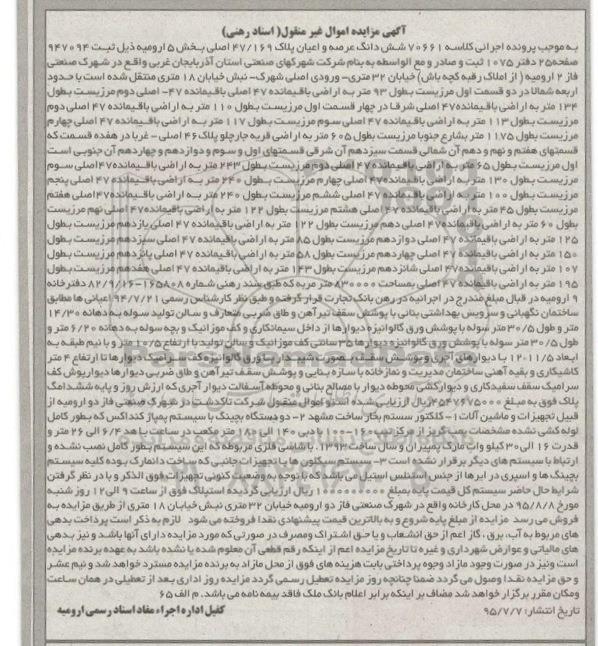 آگهی مزایده اموال غیر منقول( اسناد رهنی)
به موجب پرونده اجرائی کلاسه ۷۰۶۶۱ شش دانگ عرصه و اعیان پلاک ۴۷/۱۶۹ اصلی بخش ۵ ارومیه ذیل ثبت ۹۴۷۰۹۴
صفحه۲۵ دفتر ۱۰۷۵ ثبت و صادر و مع الواسطه به بنام شرکت شهرکهای صنعتی استان آذربایجان غربی واقع در شهرک صنعتی
فاز ۲ ارومیه ( از املاک رقبه گچه باش) خیابان ۳۲ متری- ورودی اصلی شهرک- نبش خیابان ۱۸ متری منتقل شده است با حدود
اربعه شمالا در دو قسمت اول مرزیست بطول ۹۳ متر به اراضی باقیمانده ۴۷ اصلی باقیمانده ۴۷- اصلی دوم مرزیست بطول
۱۳۴ متر به اراضی باقیمانده۴۷ اصلی شرقا در چهار قسمت اول مرزیست بطول ۱۱۰ متر به اراضی باقیمانده ۴۷ اصلی دوم
مرزیست بطول ۱۱۳ متر به اراضی باقیمانده ۴۷ اصلی سوم مرزیست بطول ۱۱۷ متر به اراضی باقیمانده ۴۷ اصلی چهارم
مرزیست بطول ۱۱۷۵ متر بشارع جنوبا مرزیست بطول ۶۰۵ متر به اراضی قریه جارچلو پلاک ۴۶ اصلی - غربا در هفده قسمت که
قسمتهای هفتم و نهم و دهم آن شمالی قسمت سیزدهم آن شرقی قسمتهای اول و سوم و دوازدهم و چهاردهم آن جنوبی است
اول مرزیست بطول ۶۵ متر به اراضی باقیمانده ۴۷ اصلی دوم مرزیست بطول ۲۴۳ متر به اراضی باقیمانده ۴۷ اصلی سوم
مرزیست بطول ۱۳۰ متر به اراضی باقیمانده ۴۷ اصلی چهارم مرزیست بطول ۲۴۰ متر به اراضی باقیمانده ۴۷ اصلی پنجم
مرزیست بطول ۱۰۰ متر به اراضی باقیمانده ۴۷ اصلی ششم مرزیست بطول ۲۴۰ متر به اراضی باقیمانده۴۷ اصلی هفتم
مرزیست بطول ۴۵ متر به اراضی باقیمانده ۴۷ اصلی هشتم مرزیست بطول ۱۲۲ متر به اراضی باقیمانده۴۷ اصلی نهم مرزیست
بطول ۶۰ متر به اراضی باقیمانده۴۷ اصلی دهم مرزیست بطول ۱۲۲ متر به اراضی باقیمانده ۴۷ اصلی یازدهم مرزیست بطول
۱۲۵ متر به اراضی باقیمانده ۴۷ اصلی دوازدهم مرزیست بطول ۸۵ متر به اراضی باقیمانده ۴۷ اصلی سیزدهم مرزیست بطول
۱۵۰ متر به اراضی باقیمانده ۴۷ اصلی چهاردهم مرزیست بطول ۵۸ متر به اراضی باقیمانده ۴۷ اصلی پانزدهم مرزیست بطول
۱۰۷ متر به اراضی باقیمانده۴۷ اصلی شانزدهم مرزیست بطول ۱۴۳ متر به اراضی باقیمانده ۴۷ اصلی هفدهم مرزیست بطول
۱۹۵ متر به اراضی باقیمانده ۴۷ اصلی بمساحت ۸۳۰۰۰۰ متر مربع که طبق سند رهنی شماره ۱۶۵۸۰۸-۸۲/۹/۲۶ دفترخانه
۹ ارومیه در قبال مبلغ مندرج در اجرائیه در رهن بانک تجارت قرار گرفته و طبق نظر کارشناس رسمی ۹۴/۷/۲۱ اعیانی ها مطابق
ساختمان نگهبانی و سرویس بهداشتی بنائی با پوشش سقف تیرآهن و طاق ضربی متعارف و سالن تولید سوله به دهانه ۱۴/۳۰
متر و طول ۳۰/۵ متر سوله با پوشش ورق گالوانیزه دیوارها از داخل سیمانکاری و کف موزائیک و بچه سوله به دهانه ۶/۲۰ متر و
طول ۳۰/۵ متر سوله با پوشش ورق گالوانیزه دیوارها ۳۵ سانتی کف موزائیک و سالن تولید با ارتفاع ۱۰/۵ متر و با نیم طبقه به
ابعاد ۱۱/۵*۱۲ با دیوارهای آجری و پوشش سقف بصورت شیبدار با ورق گالوانیزه کف سرامیک دیوارها تا ارتفاع ۴ متر
کاشیکاری و بقیه آهنی ساختمان مدیریت و نمازخانه با سازه بنایی و پوشش سقف تیرآهن و طاق ضربی دیوارها دیوارپوش کف
سرامیک سقف سفیدکاری و دیوارکشی محوطه دیوار با مصالح بنائی و محوطه آسفالت دیوار آجری که ارزش روز و پایه ششدانگ
پلاک فوق به مبلغ ریال ارزیابی شده است و اموال منقول شرکت تاکدشت در شهرک صنعتی فاز دو ارومیه از
قبیل تجهیزات و ماشین آلات ۱- کلکتور سستم بخار ساخت مشهد ۲- دو دستگاه بچینگ با سیستم پمپاژ کنداکس که بطور کامل
لوله کشی نشده مشخصات پمپ گریز از مرکز تیپ ۱۶۰-۱۰۰ با دبی ۱۴۰ الی ۱۸۰ متر مکعب در ساعت با هد ۶/۴ الی ۲۶ متر و
قدرت ۱۶ الی۳۰ کیلو وات مارک پمپیران و سال ساخت ۱۳۹۳، با شاسی فلزی مربوطه که این سیستم بطور کامل نصب نشده و
ارتباط با سیستم های دیگر برقرار نشده است ۳- سیستم سیکلون با تجهیزات جانبی که ساخت دانمارک بوده کلیه سیستم
بچینگ ها و اسپری درایرها از جنس استنلس استیل می باشد که با توجه به وضعیت کنونی تجهیزات فوق الذکر و با در نظر گرفتن
شرایط حال حاضر سیستم کل قیمت پایه بمبلغ ریال ارزیابی گردیده استپلاک فوق از ساعت ۹ الی ۱۲ روز شنبه
مورخ ۹۵/۸/۸ در محل کارخانه واقع در شهرک صنعتی فاز دو ارومیه خیابان ۳۲ متری نبش خیابان ۱۸ متری از طریق مزایده به
فروش می رسد مزایده از مبلغ پایه شروع و به بالاترین قیمت پیشنهادی نقدا فروخته می شود لازم به ذکر است پرداخت بدهی
های مربوط به آب، برق، گاز اعم از حق انشعاب و یا حق اشتراک ومصرف در صورتی که مورد مزایده دارای آنها باشد و نیز بدهی
های مالیاتی و عوارض شهرداری و غیره تا تاریخ مزایده اعم از اینکه رقم قطعی آن معلوم شده یا نشده باشد به عهده برنده مزایده
است ونیز در صورت وجود مازاد وجوه پرداختی بابت هزینه های فوق از محل مازاد به برنده مزایده مسترد خواهد شد و نیم عشر
و حق مزایده نقدا وصول می گردد ضمنا چنانچه روز مزایده تعطیل رسمی گردد مزایده روز اداری بعد از تعطیلی در همان ساعت
ومکان مقرر برگزار خواهد شد مضاف بر اینکه برابر اعلام بانک ملک فاقد بیمه نامه می باشد. م الف ۶۵
تاریخ انتشار: ۹۵/۷/۷ کفیل اداره اجراء مفاد اسناد رسمی ارومیه